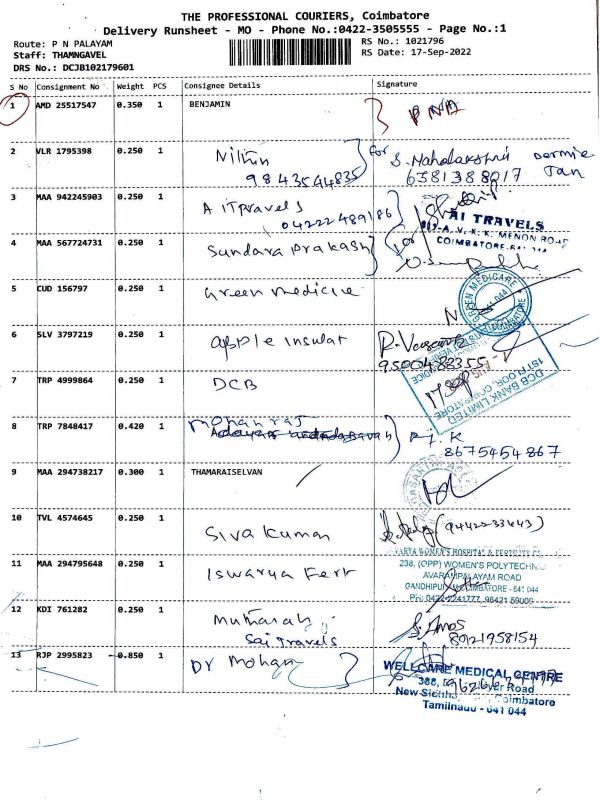 THE PROFESSIONAL COURIERS, Coimbatore
Delivery Runsheet - MO - Phone No.:0422-3505555 - Page No.:1
Route: P N PALAYAM
Staff: THAMNGAVEL
DRS No.: DCJB102179601
RS No.: 1021796
RS Date: 17-Sep-2022
S No Consignment No Weight PCS Consignee Details Signature
1 AMD 25517547 0.350 1 BENJAMIN PNA
2 VLR 1795398 0.250 1 Nithin
9843544835
for S. Mahalakshmi
6381388017
3 MAA 942245903 0.250 1 A IT Travels
04222489186
AI TRAVELS
V. K. K. MENON ROAD
COIMBATORE-641 044
4 MAA 567724731 0.250 1 Sundara Prakash
5 CUD 156797 0.250 1 Green medicine
GREEN MEDICARE
6 SLV 3797219 0.250 1 apple insulat
9500488355
7 TRP 4999864 0.250 1 DCB
DCB BANK LIMITED
1ST FLOOR, COIMBATORE
8 TRP 7848417 0.420 1 mohanraj
R.j.K
8675454867
9 MAA 294738217 0.300 1 THAMARAISELVAN
10 TVL 4574645 0.250 1 Siva Kumar
(9442233443)
11 MAA 294795648 0.250 1 Iswarya Fert
WOMEN'S HOSPITAL & FERTILITY
238, (OPP) WOMEN'S POLYTECHNIC
AVARAMPALAYAM ROAD
COIMBATORE - 641 044
PH: 0422-2241777, 98421 59009
12 KDI 761282 0.250 1
Sai Travels
S. Amos
80121958154
13 RJP 2995823 0.850 1 Dr Mohan
WELLCARE MEDICAL CENTRE
388,
Road
Coimbatore
Tamilnadu - 641 044